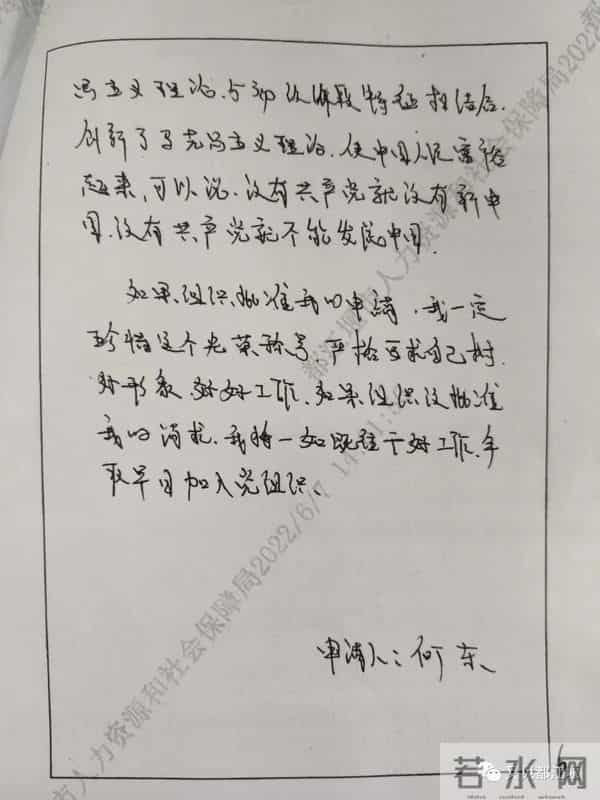 马主义理论与初级阶段特征相结合,
创新了马克思主义理论,使中国人民富裕
起来,可以说,没有共产党就没有新中
国,没有共产党就不能发展中国.
如果组织批准我的申请,我一定
珍惜这个光荣称号,严格要求自己,树
好形象,好好工作,如果组织没批准
我的请求,我将一如既往干好工作,争
取早日加入党组织、
申请人:何东、
人力资源和社会保障局2022
市人力资源和社会保障局2022/6/7 14:
若水网